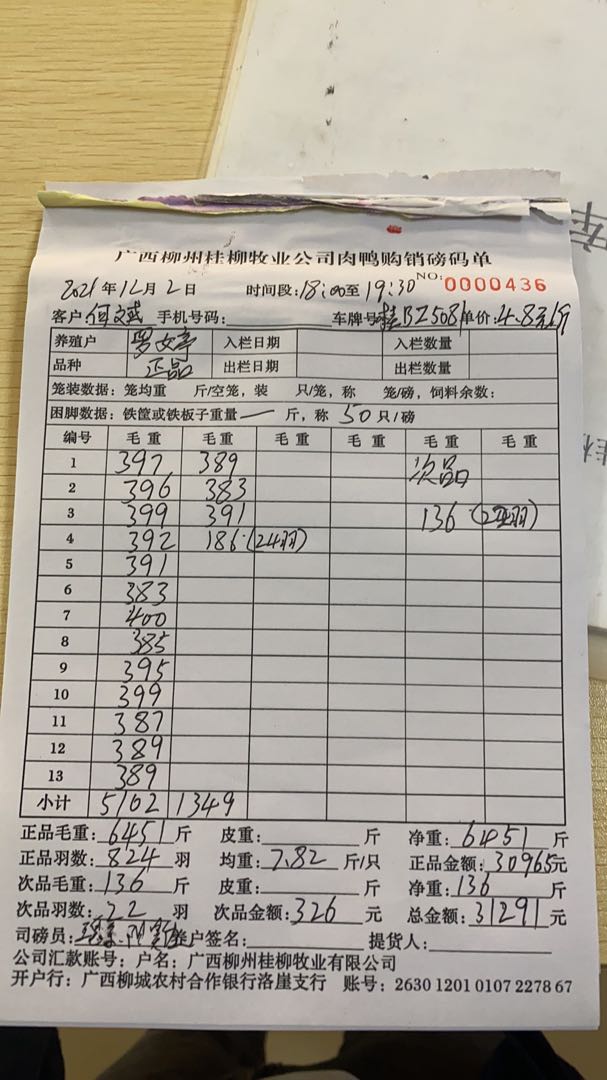 广西柳州桂柳牧业公司肉鸭购销磅码单
2021年12月2日 时间段:18:00至19:30 NO:0000436
客户 何文武 手机号码: 车牌号:桂BZ5081 单价:4.8元/斤
养殖户 入栏日期 入栏数量
品种 正品 出栏日期 出栏数量
笼装数据:笼均重 斤/空笼,装 只/笼,称 笼/磅,饲料余数:
困脚数据:铁筐或铁板子重量 一 斤,称 50 只/磅
编号 毛重 毛重 毛重 毛重 毛重 毛重
1 397 389 次品
2 396 383
3 399 391 136 (22羽)
4 392 186 (24羽)
5 391
6 383
7 400
8 385
9 395
10 399
11 387
12 389
13 389
小计 5102 1349
正品毛重:6451斤 皮重: 斤 净重:6451斤
正品羽数:824羽 均重:7.82斤/只 正品金额:30965元
次品毛重:136斤 皮重: 斤 净重:136斤
次品羽数:22羽 次品金额:326元 总金额:31291元
司磅员: 客户签名: 提货人:
公司汇款账号:户名:广西柳州桂柳牧业有限公司
开户行:广西柳城农村合作银行洛崖支行 账号:2630 1201 0107 2278 67
车